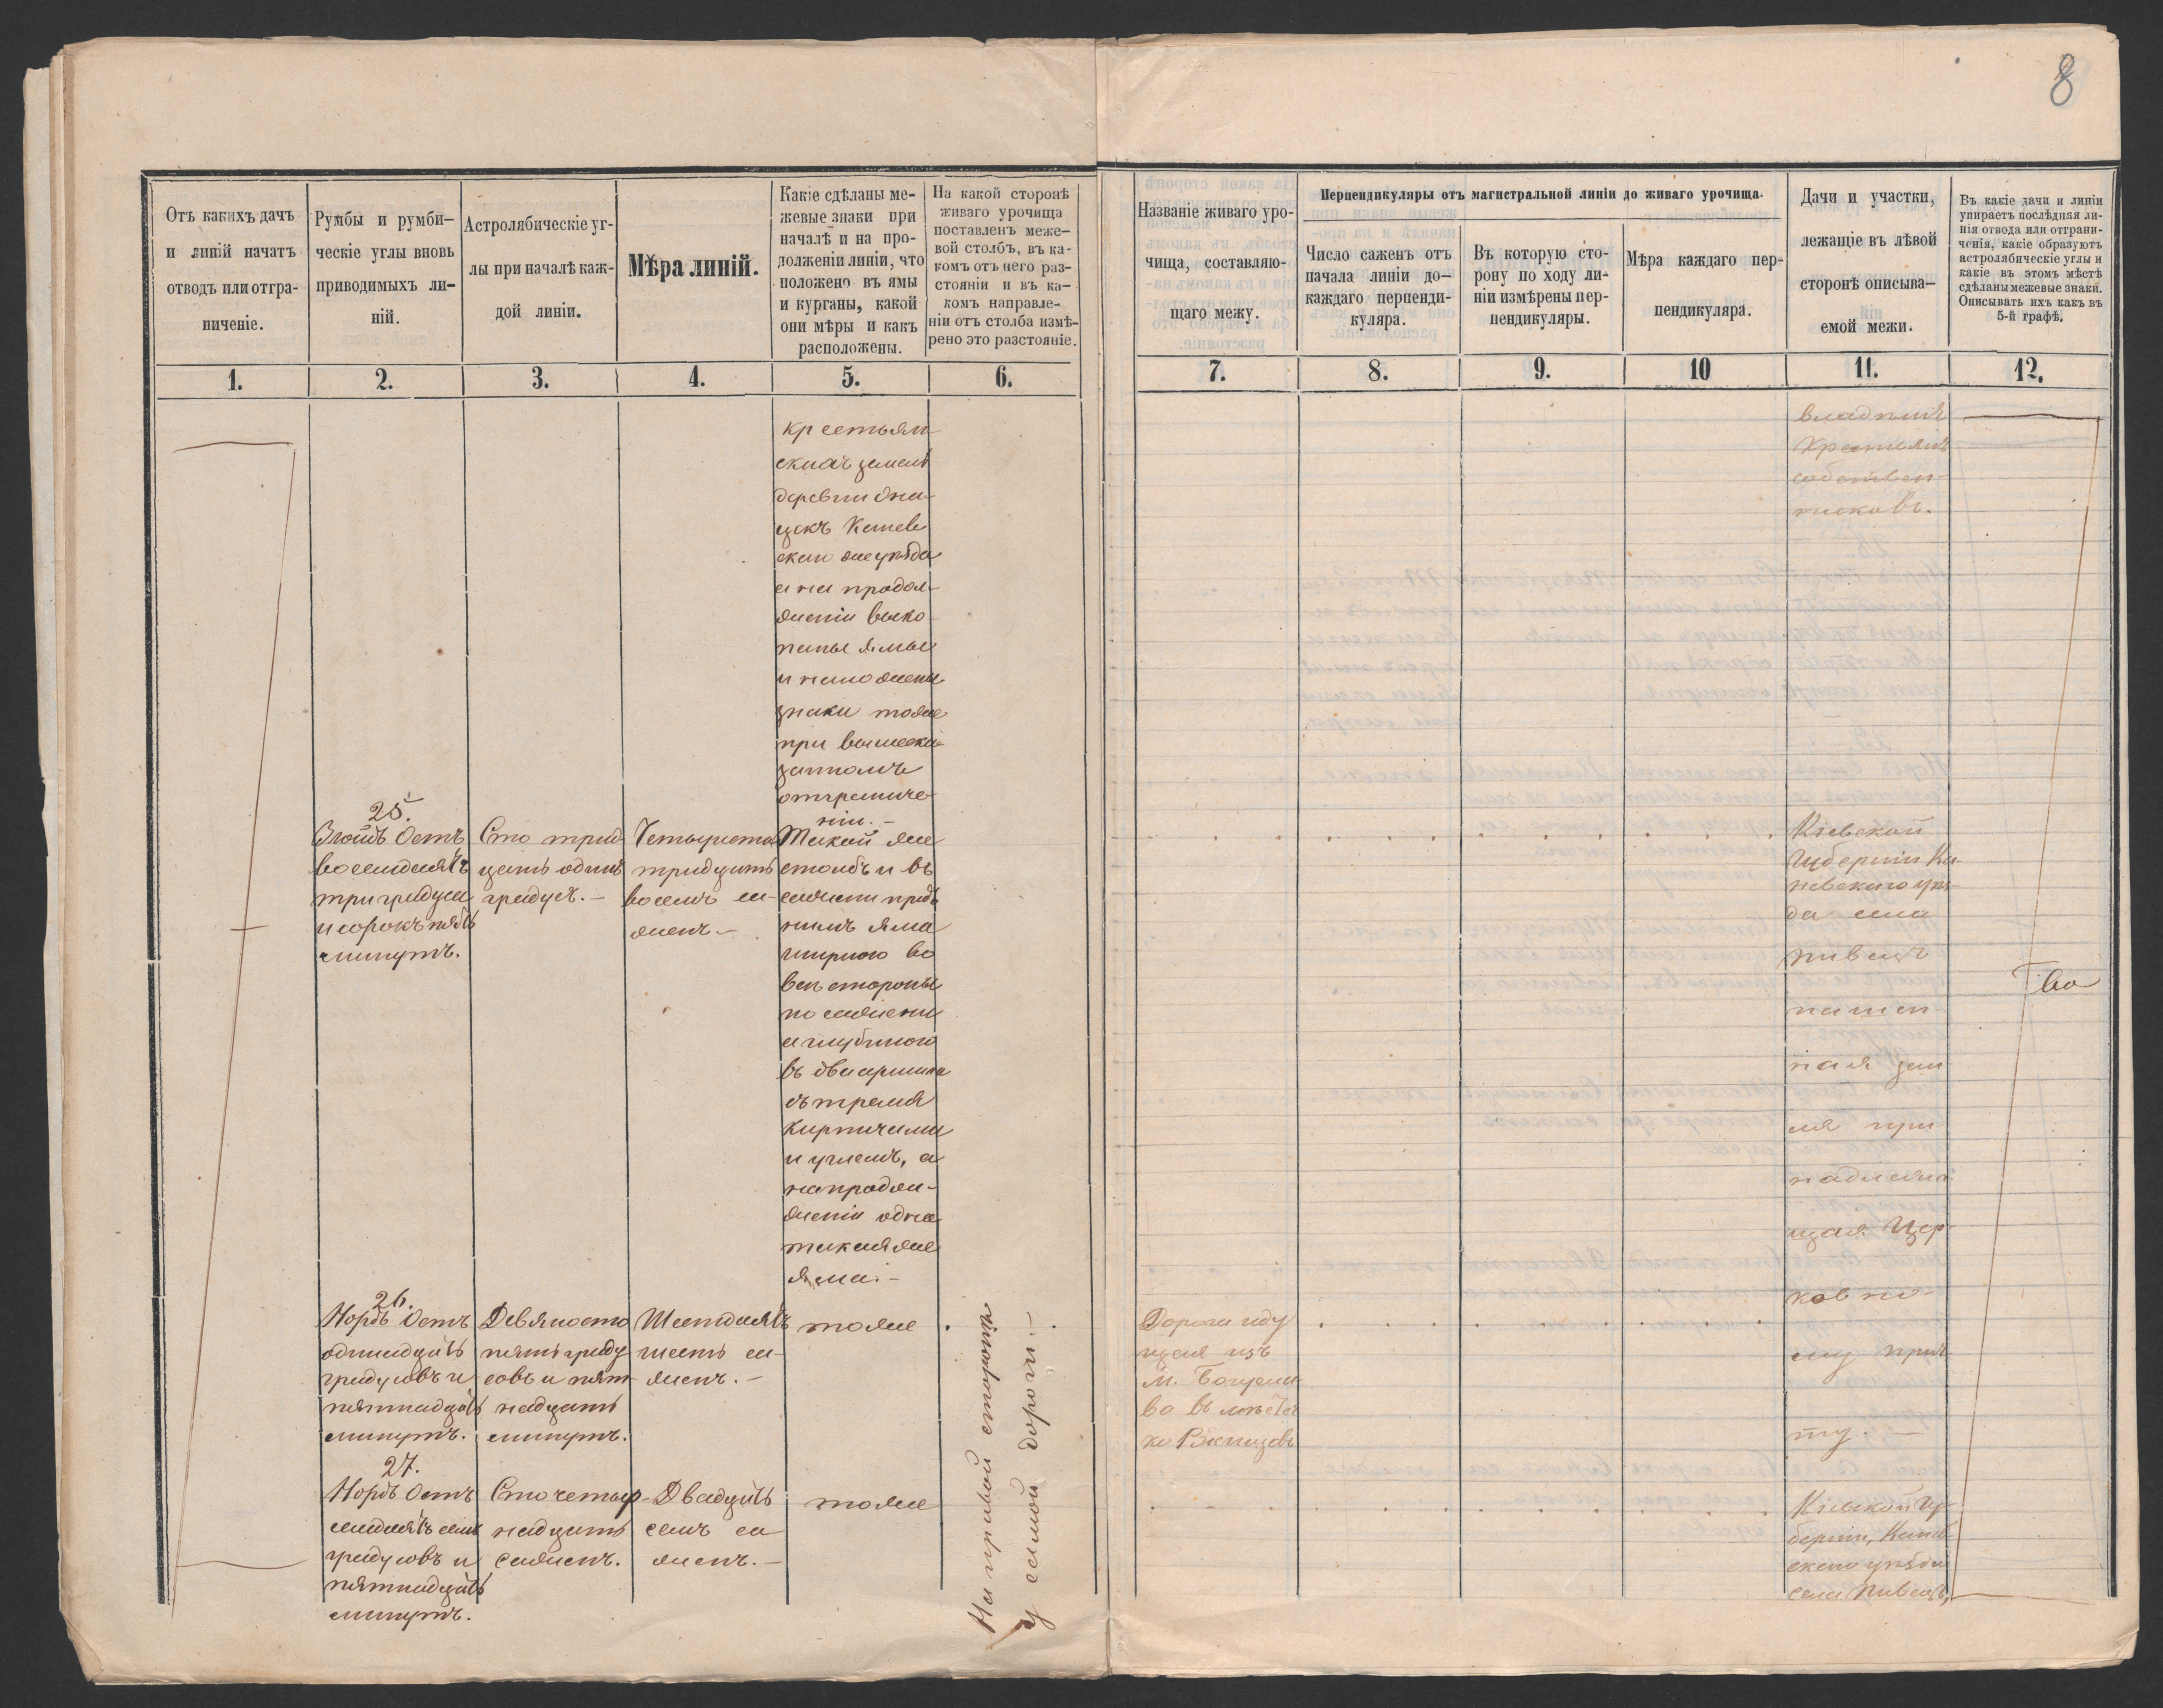 8
Отъ какихъ дачъ
и линій начатъ
отводъ или отгра-
ниченіе.
Румбы и румби-
ческіе углы вновь
приводимыхъ ли-
ній.
Астролябическіе уг-
лы при началѣ каж-
дой линіи.
Мѣра линій.
Какіе сдѣланы ме-
жевые знаки при
началѣ и на про-
долженіи линіи, что
положено въ ямы
и курганы, какой
они мѣры и какъ
расположены.
На какой сторонѣ
живаго урочища
поставленъ меже-
вой столбъ, въ ка-
комъ отъ него раз-
стояніи и въ ка-
комъ направле-
ніи отъ столба измѣ-
рено это разстояніе.
Названіе живаго уро-
чища, составляю-
щаго межу.
Перпендикуляры отъ магистральной линіи до живаго урочища.
Число саженъ отъ
начала линіи до-
каждаго перпенди-
куляра.
Въ которую сто-
рону по ходу ли-
ніи измѣрены пер-
пендикуляры.
Мѣра каждаго пер-
пендикуляра.
Дачи и участки,
лежащіе въ лѣвой
сторонѣ описыва-
емой межи.
Въ какіе дачи и линіи
упираетъ послѣдняя ли-
нія отвода или отграни-
ченія, какіе образуютъ
астролябическіе углы и
какіе въ этомъ мѣстѣ
сдѣланы межевые знаки.
Описывать ихъ какъ въ
5-й графѣ.
1. 2. 3. 4. 5. 6. 7. 8. 9. 10 11. 12.
крестьян-
скихъ земель
деревни
Канев-
скаго же уѣзда
а на продол-
женіи выко-
паны ямы
и положены
знаки тоже
при вышеска-
занномъ
отграниче-
ніи.-
25.
Зюйдъ Остъ
восемдесятъ
три градуса
и сорокъ пять
минутъ.
Сто трид-
цать одинъ
градусъ.-
Четыреста
тридцать
восемь са-
женъ.-
Такой же
столбъ и въ
сажени предъ
нимъ яма
шириною во
всѣ стороны
по сажени
а глубиною
въ два аршина
съ тремя
кирпичами
и углемъ, а
на продол-
женіи одна
такая же
яма.-
26.
Нордъ Остъ
одинадцать
градусовъ и
пятнадцать
минутъ.
Девяносто
пять граду
совъ и пят-
надцать
минутъ.
Шестдесятъ
шесть са-
женъ.-
тоже
27.
Нордъ Остъ
семдесятъ семь
градусовъ и
пятнадцать
минутъ.
Сто четыр-
надцать
саженъ.
Двадцать
семь са
женъ.-
тоже
На правой сторонѣ
у самой дороги.-
Дорога иду
щая изъ
м. Богусла-
ва въ мѣстеч
ко
владѣнія
крестьянъ
собствен-
никовъ.
Кіевской
Губерніи Ка-
невскаго уѣз-
да села
Пивецъ
пахат-
ная зем
ля при-
надлежа-
щая Цер-
ковно-
му прич-
ту.-
Кіевской Гу-
берніи, Канев-
скаго уѣзда
села Пивецъ,
во